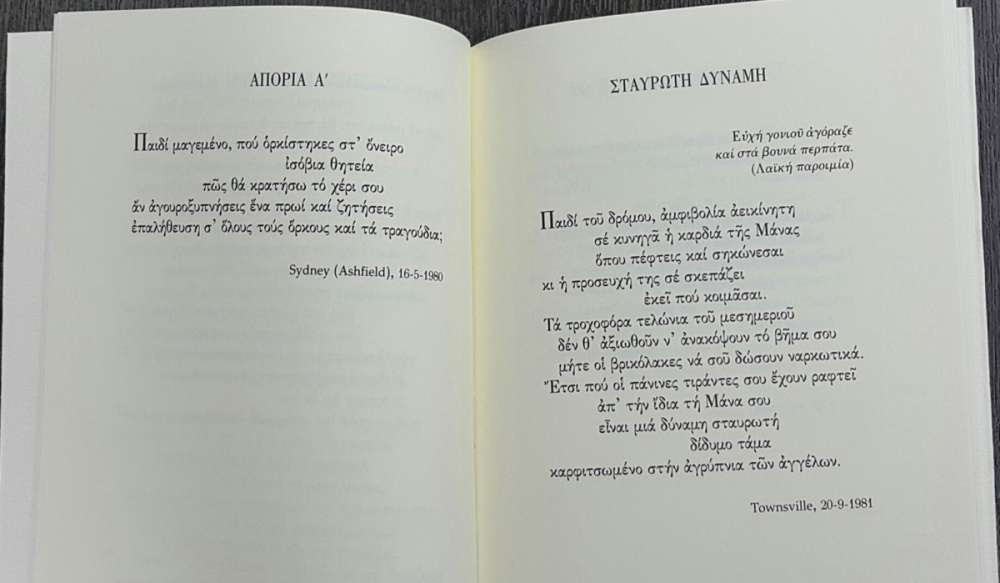 ΑΠΟΡΙΑ Α'
Παιδί μαγεμένο, πού ὁρκίστηκες στ' ὄνειρο
ἰσόβια θητεία
πῶς θά κρατήσω τό χέρι σου
ἄν ἀγουροξυπνήσεις ἕνα πρωί καί ζητήσεις
ἐπαλήθευση σ' ὅλους τούς ὅρκους καί τά τραγούδια;
Sydney (Ashfield), 16-5-1980
ΣΤΑΥΡΩΤΗ ΔΥΝΑΜΗ
Εὐχή γονιοῦ ἀγόραζε
καί στά βουνά περπάτα.
(Λαϊκή παροιμία)
Παιδί τοῦ δρόμου, ἀμφιβολία ἀεικίνητη
σέ κυνηγᾶ ἡ καρδιά τῆς Μάνας
ὅπου πέφτεις καί σηκώνεσαι
κι ἡ προσευχή της σέ σκεπάζει
ἐκεῖ πού κοιμᾶσαι.
Τά τροχοφόρα τελώνια τοῦ μεσημεριοῦ
δέν θ' ἀξιωθοῦν ν' ἀνακόψουν τό βῆμα σου
μήτε οἱ βρικόλακες νά σοῦ δώσουν ναρκωτικά.
Ἔτσι πού οἱ πάνινες τιράντες σου ἔχουν ραφτεῖ
ἀπ' τήν ἴδια τή Μάνα σου
εἶναι μιά δύναμη σταυρωτή
δίδυμο τάμα
καρφιτσωμένο στήν ἀγρύπνια τῶν ἀγγέλων.
Townsville, 20-9-1981